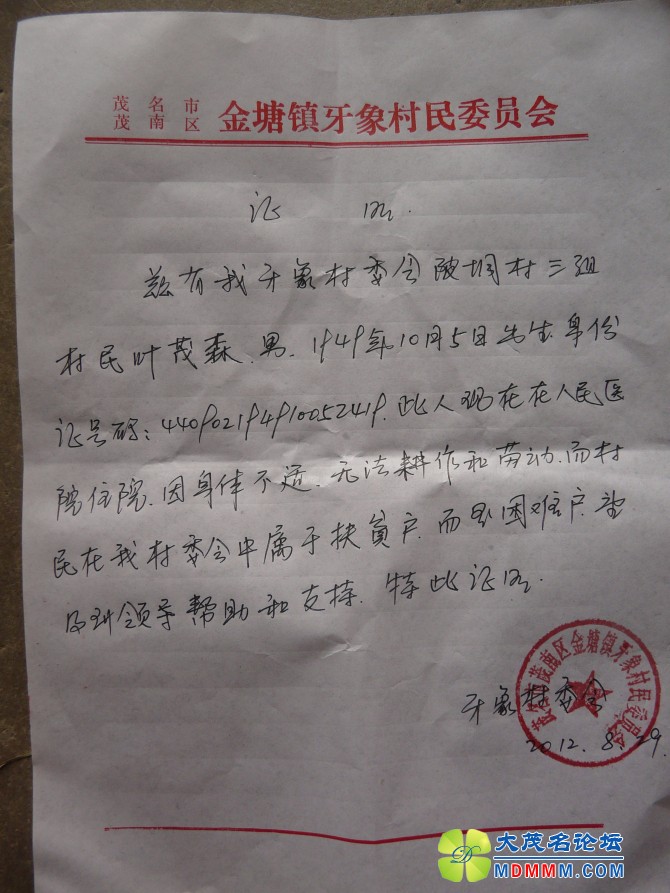 茂名市
茂南区 金塘镇牙象村民委员会
证 明.
兹有我牙象村委会陂垌村三组
村民叶茂森.男.1949年10月5日出生.身份
证号码:440902194910052419.此人现在在人民医
院住院.因身体不适.无法耕作和劳动.而村
民在我村委会中属于扶贫户.而是困难户.望
得到领导帮助和支持.特此证明.
牙象村委会
2012.8.29.
茂名市茂南区金塘镇牙象村民委员会
大茂名论坛
MDMMM.COM